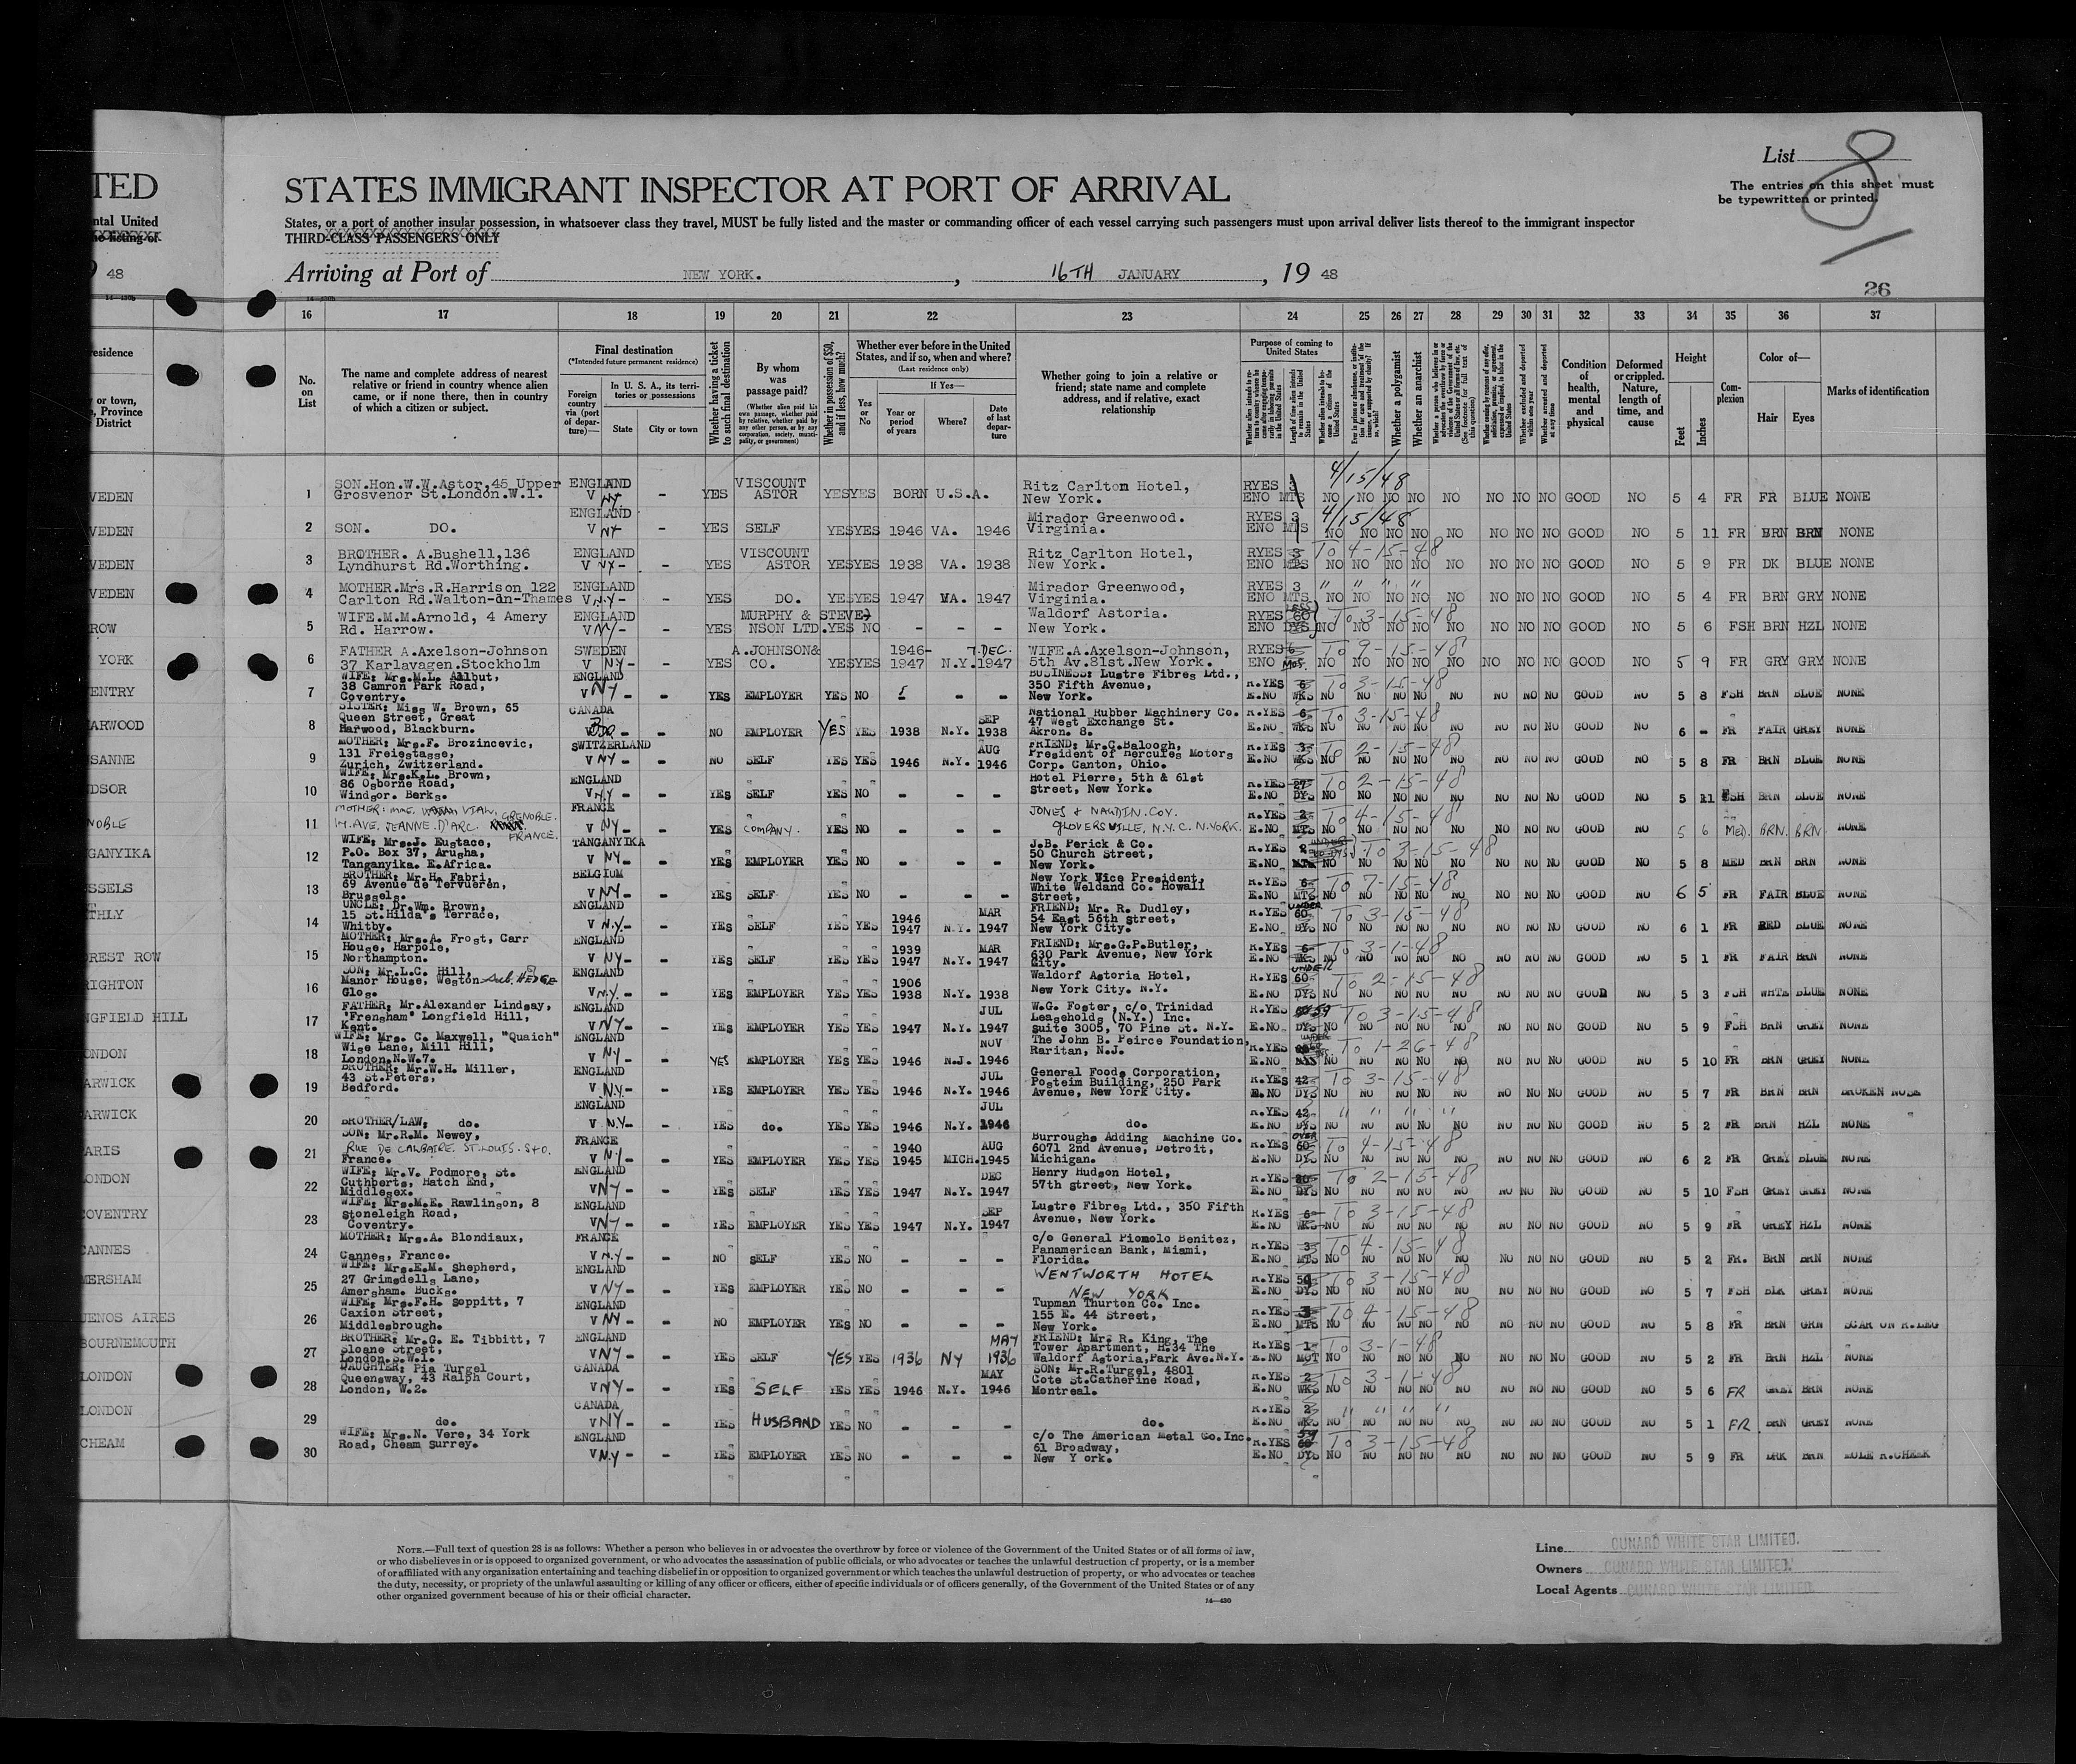 List 8
TED
STATES IMMIGRANT INSPECTOR AT PORT OF ARRIVAL
The entries on this sheet must
be typewritten or printed.
ntal United
States, or a port of another insular possession, in whatsoever class they travel, MUST be fully listed and the master or commanding officer of each vessel carrying such passengers must upon arrival deliver lists thereof to the immigrant inspector
THIRD-CLASS PASSENGERS ONLY
48
Arriving at Port of NEW YORK. , 16TH JANUARY , 19 48
26
16 17 18 19 20 21 22 23 24 25 26 27 28 29 30 31 32 33 34 35 36 37
No. on List
The name and complete address of nearest relative or friend in country whence alien came, or if none there, then in country of which a citizen or subject.
Final destination
(*Intended future permanent residence)
Foreign country via (port of departure)—
In U. S. A., its territories or possessions
State
City or town
Whether having a ticket to such final destination
By whom was passage paid?
(Whether alien paid his own passage, whether paid by relative, whether paid by any other person, or by any corporation, society, municipality, or government)
Whether in possession of $50, and if less, how much?
Whether ever before in the United States, and if so, when and where?
(Last residence only)
Yes or No
If Yes—
Year or period of years
Where?
Date of last departure
Whether going to join a relative or friend; state name and complete address, and if relative, exact relationship
Purpose of coming to United States
Whether a polygamist
Whether an anarchist
Condition of health, mental and physical
Deformed or crippled. Nature, length of time, and cause
Height
Feet
Inches
Complexion
Color of—
Hair
Eyes
Marks of identification
VEDEN 1 SON.Hon.W.W.Astor,45 Upper Grosvenor St.London.W.1. ENGLAND V NY - YES VISCOUNT ASTOR YES YES BORN U.S.A. Ritz Carlton Hotel, New York. RYES 3 ENO MTS 4/15/48 NO NO NO NO NO NO NO NO GOOD NO 5 4 FR FR BLUE NONE
VEDEN 2 SON. DO. ENGLAND V NY - YES SELF YES YES 1946 VA. 1946 Mirador Greenwood. Virginia. RYES 3 ENO MTS 4/15/48 NO NO NO NO NO NO NO NO GOOD NO 5 11 FR BRN BRN NONE
VEDEN 3 BROTHER. A.Bushell,136 Lyndhurst Rd.Worthing. ENGLAND V NY - - YES VISCOUNT ASTOR YES YES 1938 VA. 1938 Ritz Carlton Hotel, New York. RYES 3 ENO MTS To 4-15-48 NO NO NO NO NO NO NO NO GOOD NO 5 9 FR DK BLUE NONE
VEDEN 4 MOTHER.Mrs.R.Harrison 122 Carlton Rd.Walton-on-Thames ENGLAND V N.Y - - YES DO. YES YES 1947 VA. 1947 Mirador Greenwood, Virginia. RYES 3 ENO MTS " " " " NO NO NO NO NO NO NO NO GOOD NO 5 4 FR BRN GRY NONE
ROW 5 WIFE.M.M.Arnold, 4 Amery Rd. Harrow. ENGLAND V NY - - YES MURPHY & STEVENSON LTD. YES NO - - - Waldorf Astoria. New York. RYES 60 ENO DYS To 3-15-48 NO NO NO NO NO NO NO NO GOOD NO 5 6 FSH BRN HZL NONE
YORK 6 FATHER A.Axelson-Johnson 37 Karlavagen.Stockholm SWEDEN V NY - - YES A.JOHNSON& CO. YES YES 1946-1947 N.Y. 7.DEC. 1947 WIFE.A.Axelson-Johnson, 5th Av.81st.New York. RYES 6 ENO Mos. To 9-15-48 NO NO NO NO NO NO NO NO GOOD NO 5 9 FR GRY GRY NONE
ENTRY 7 WIFE: Mrs.M.L. Allbut, 38 Camron Park Road, Coventry. ENGLAND V NY - - YES EMPLOYER YES NO - - BUSINESS: Lustre Fibres Ltd., 350 Fifth Avenue, New York. R.YES 6 E.NO WKS To 3-15-48 NO NO NO NO NO NO NO NO GOOD NO 5 8 FSH BRN BLUE NONE
ARWOOD 8 SISTER: Miss W. Brown, 65 Queen Street, Great Harwood, Blackburn. CANADA - - NO EMPLOYER YES YES 1938 N.Y. SEP 1938 National Rubber Machinery Co. 47 West Exchange St. Akron. 8. R.YES 6 E.NO WKS To 3-15-48 NO NO NO NO NO NO NO NO GOOD NO 6 - FR FAIR GREY NONE
SANNE 9 MOTHER: Mrs.F. Brozincevic, 131 Freiestasse, Zurich, Zwitzerland. SWITZERLAND V NY - - NO SELF YES YES 1946 N.Y. AUG 1946 FRIEND: Mr.C.Baloogh, President of Hercules Motors Corp. Canton, Ohio. R.YES 3 E.NO WKS To 2-15-48 NO NO NO NO NO NO NO NO GOOD NO 5 8 FR BRN BLUE NONE
DSOR 10 WIFE: Mrs.K.L. Brown, 86 Osborne Road, Windsor. Berks. ENGLAND V N.Y - - YES SELF YES NO - - - Hotel Pierre, 5th & 61st Street, New York. R.YES 27 E.NO DYS To 2-15-48 NO NO NO NO NO NO NO NO GOOD NO 5 11 FSH BRN BLUE NONE
NOBLE 11 MOTHER: MME. VIAL, AVE. JEANNE D'ARC. GRENOBLE. FRANCE. FRANCE V NY - - YES COMPANY. YES NO - - - JONES & NAUDIN. COY. GLOVERSVILLE, N.Y.C. N.YORK. R.YES 2 E.NO MTS To 4-15-48 NO NO NO NO NO NO NO NO GOOD NO 5 6 MED. BRN. BRN. NONE
GANYIKA 12 WIFE: Mrs.J. Eustace, P.O. Box 37, Arusha, Tanganyika. E.Africa. TANGANYIKA V NY - - YES EMPLOYER YES NO - - - J.B. Perick & Co. 50 Church Street, New York. R.YES 2 E.NO MTS To 3-15-48 NO NO NO NO NO NO NO NO GOOD NO 5 8 MED BRN BRN NONE
SSELS 13 BROTHER: Mr.H. Fabri, 69 Avenue de Tervueren, Brussels. BELGIUM V NY - - YES SELF YES NO - - - New York Vice President, White Weldand Co. Howall Street, R.YES 6 E.NO MTS To 7-15-48 NO NO NO NO NO NO NO NO GOOD NO 6 5 FR FAIR BLUE NONE
THLY 14 UNCLE: Dr.Wm. Brown, 15 St.Hilda's Terrace, Whitby. ENGLAND V N.Y. - - YES SELF YES YES 1946 1947 N.Y. MAR 1947 FRIEND: Mr. R. Dudley, 54 East 56th Street, New York City. R.YES UNDER 60 E.NO DYS To 3-15-48 NO NO NO NO NO NO NO NO GOOD NO 6 1 FR RED BLUE NONE
OREST ROW 15 MOTHER: Mrs.A. Frost, Carr House, Harpole, Northampton. ENGLAND V NY - - YES SELF YES YES 1939 1947 N.Y. MAR 1947 FRIEND: Mrs.G.P.Butler, 630 Park Avenue, New York City. R.YES 6 E.NO WKS To 3-1-48 NO NO NO NO NO NO NO NO GOOD NO 5 1 FR FAIR BRN NONE
RIGHTON 16 SON: Mr.L.C. Hill, Manor House, Weston Sub. HEDGE Glos. ENGLAND V N.Y. - - YES EMPLOYER YES YES 1906 1938 N.Y. 1938 Waldorf Astoria Hotel, New York City. N.Y. R.YES UNDER 60 E.NO DYS To 2-15-48 NO NO NO NO NO NO NO NO GOOD NO 5 3 FSH WHTE BLUE NONE
NGFIELD HILL 17 FATHER, Mr.Alexander Lindsay, "Frensham" Longfield Hill, Kent. ENGLAND V NY - - YES EMPLOYER YES YES 1947 N.Y. JUL 1947 W.G. Foster, c/o Trinidad Leaseholds (N.Y.) Inc. Suite 3005, 70 Pine St. N.Y. R.YES 59 E.NO DYS To 3-15-48 NO NO NO NO NO NO NO NO GOOD NO 5 9 FSH BRN GREY NONE
ONDON 18 WIFE: Mrs. C. Maxwell, "Quaich" Wise Lane, Mill Hill, London.N.W.7. ENGLAND V NY - - YES EMPLOYER YES YES 1946 N.J. NOV 1946 The John B. Peirce Foundation, Raritan, N.J. R.YES UNDER E.NO To 1-26-48 NO NO NO NO NO NO NO NO GOOD NO 5 10 FR BRN GREY NONE
ARWICK 19 BROTHER: Mr.W.H. Miller, 43 St.Peters, Bedford. ENGLAND V N.Y. - - YES EMPLOYER YES YES 1946 N.Y. JUL 1946 General Foods Corporation, Posteim Building, 250 Park Avenue, New York City. R.YES 42 E.NO DYS To 3-15-48 NO NO NO NO NO NO NO NO GOOD NO 5 7 FR BRN BRN BROKEN NOSE
ARWICK 20 BROTHER/LAW; do. ENGLAND V N.Y- - YES do. YES YES 1946 N.Y. JUL 1946 do. R.YES 42 E.NO DYS " " " " NO NO NO NO NO NO NO NO GOOD NO 5 2 FR BRN HZL NONE
ARIS 21 SON: Mr.R.M. Newey, RUE DE CALBAIRE. ST.LOUIS. S+O. France. FRANCE V N.Y - - YES EMPLOYER YES YES 1940 1945 MICH. AUG 1945 Burroughs Adding Machine Co. 6071 2nd Avenue, Detroit, Michigan. R.YES OVER 60 E.NO DYS To 4-15-48 NO NO NO NO NO NO NO NO GOOD NO 6 2 FR GREY BLUE NONE
ONDON 22 WIFE: Mr.V. Podmore, St. Cuthberts, Hatch End, Middlesex. ENGLAND V NY - - YES SELF YES YES 1947 N.Y. DEC 1947 Henry Hudson Hotel, 57th street, New York. R.YES E.NO DYS To 2-15-48 NO NO NO NO NO NO NO NO GOOD NO 5 10 FSH GREY GREY NONE
COVENTRY 23 WIFE: Mrs.M.E. Rawlinson, 8 Stoneleigh Road, Coventry. ENGLAND V NY - - YES EMPLOYER YES YES 1947 N.Y. SEP 1947 Lustre Fibres Ltd., 350 Fifth Avenue, New York. R.YES 6 E.NO WKS To 3-15-48 NO NO NO NO NO NO NO NO GOOD NO 5 9 FR GREY HZL NONE
CANNES 24 MOTHER: Mrs.A. Blondiaux, Cannes, France. FRANCE V N.Y - - NO SELF YES NO - - - c/o General Piomolo Benitez, Panamerican Bank, Miami, Florida. R.YES 3 E.NO MTS To 4-15-48 NO NO NO NO NO NO NO NO GOOD NO 5 2 FR. BRN BRN NONE
MERSHAM 25 WIFE: Mrs.E.M. Shepherd, 27 Grimsdells Lane, Amersham. Bucks. ENGLAND V NY - - YES EMPLOYER YES NO - - - WENTWORTH HOTEL NEW YORK R.YES 59 E.NO DYS To 3-15-48 NO NO NO NO NO NO NO NO GOOD NO 5 7 FSH BLK GREY NONE
UENOS AIRES 26 WIFE; Mrs.F.H. Soppitt, 7 Caxion Street, Middlesbrough. ENGLAND V NY - - NO EMPLOYER YES NO - - - Tupman Thurton Co. Inc. 155 E. 44 Street, New York. R.YES 3 E.NO MTS To 4-15-48 NO NO NO NO NO NO NO NO GOOD NO 5 8 FR BRN GRN SCAR ON R.LEG
BOURNEMOUTH 27 BROTHER: Mr.G. E. Tibbitt, 7 Sloane Street, London.S.W.1. ENGLAND V NY - - YES SELF YES YES 1936 NY MAY 1936 FRIEND: Mr. R. King, The Tower Apartment, H.34 The Waldorf Astoria,Park Ave.N.Y. R.YES 1 E.NO MOT To 3-1-48 NO NO NO NO NO NO NO NO GOOD NO 5 2 FR BRN HZL NONE
LONDON 28 DAUGHTER: Pia Turgel Queensway, 43 Ralph Court, London, W.2. CANADA V NY - - YES SELF YES YES 1946 N.Y. MAY 1946 SON: Mr.R.Turgel, 4801 Cote St.Catherine Road, Montreal. R.YES 2 E.NO WKS To 3-1-48 NO NO NO NO NO NO NO NO GOOD NO 5 6 FR GREY BRN NONE
LONDON 29 do. CANADA V NY - - YES HUSBAND YES NO - - - do. R.YES 2 E.NO WKS " " " " NO NO NO NO NO NO NO NO GOOD NO 5 1 FR BRN GREY NONE
CHEAM 30 WIFE: Mrs.N. Vere, 34 York Road, Cheam Surrey. ENGLAND V N.Y - - YES EMPLOYER YES NO - - - c/o The American Metal Co.Inc. 61 Broadway, New Y ork. R.YES 59 E.NO DYS To 3-15-48 NO NO NO NO NO NO NO NO GOOD NO 5 9 FR DRK BRN MOLE R.CHEEK
NOTE.—Full text of question 28 is as follows: Whether a person who believes in or advocates the overthrow by force or violence of the Government of the United States or of all forms of law,
or who disbelieves in or is opposed to organized government, or who advocates the assassination of public officials, or who advocates or teaches the unlawful destruction of property, or is a member
of or affiliated with any organization entertaining and teaching disbelief in or opposition to organized government or which teaches the unlawful destruction of property, or who advocates or teaches
the duty, necessity, or propriety of the unlawful assaulting or killing of any officer or officers, either of specific individuals or of officers generally, of the Government of the United States or of any
other organized government because of his or their official character.
14—430
Line CUNARD WHITE STAR LIMITED.
Owners CUNARD WHITE STAR LIMITED.
Local Agents CUNARD WHITE STAR LIMITED.